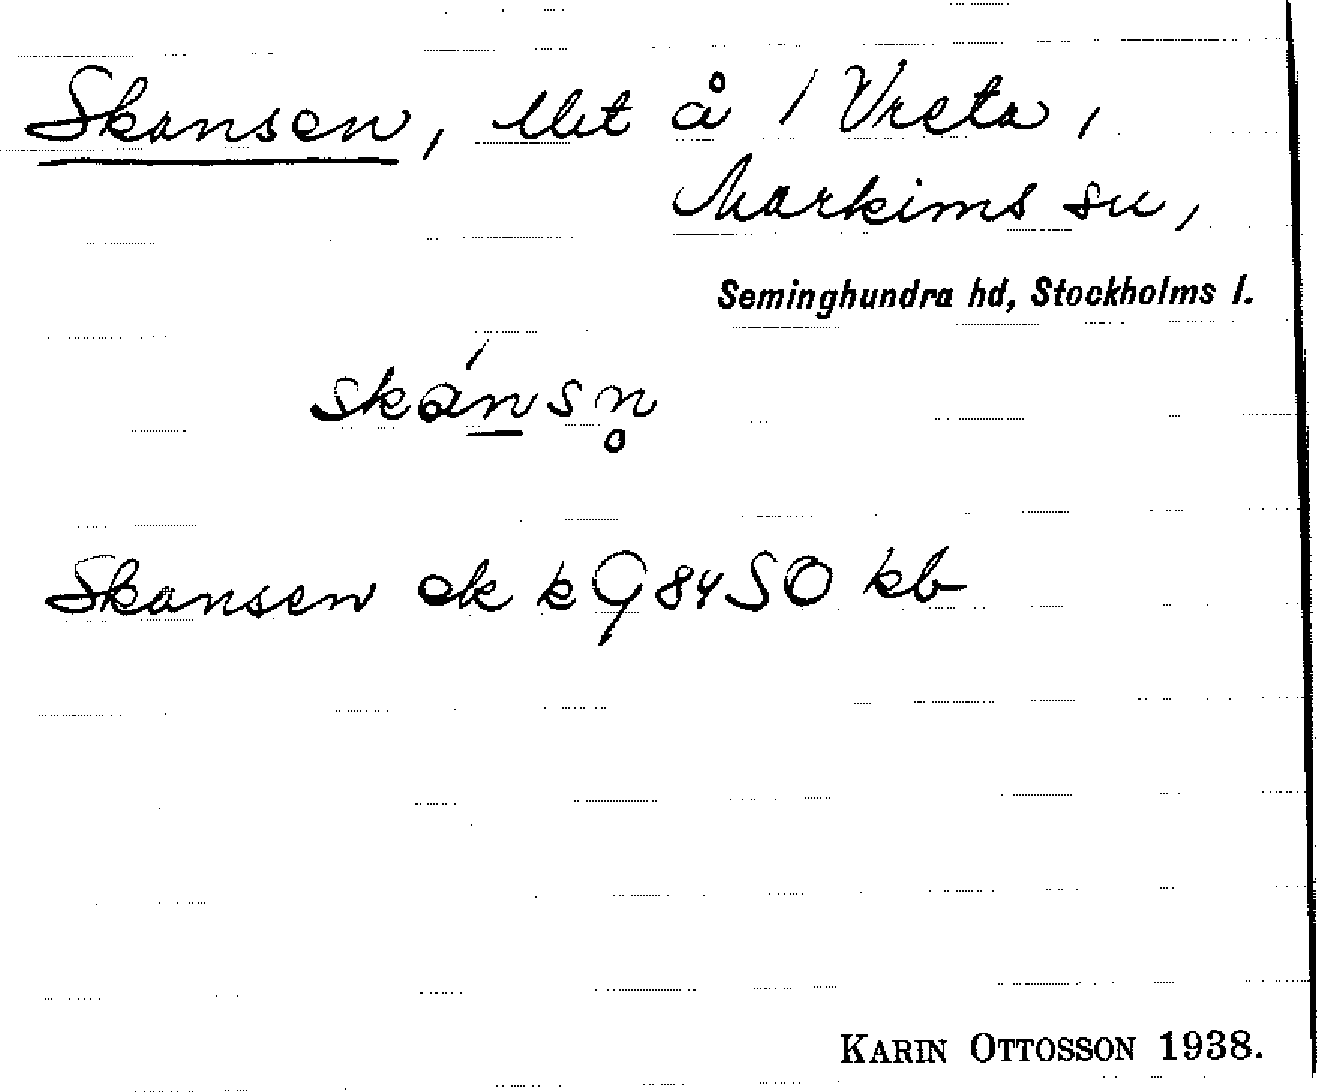 Skansen, lht å 1 Vreta,
Markims sn,
Seminghundra hd, Stockholms l.
skánsn̥
Skansen ek k G 8450 kb
KARIN OTTOSSON 1938.